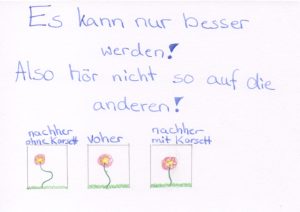 Es kann nur besser
werden!
Also hör nicht so auf die
anderen!
nachher
ohne Korsett
voher
nachher
mit Korsett